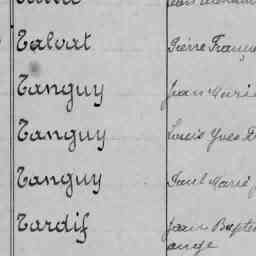 Talvat Pierre Franç
Tanguy Jean Marie
Tanguy Louis Yves
Tanguy Paul Marie
Tardif Jean Bapte
ange